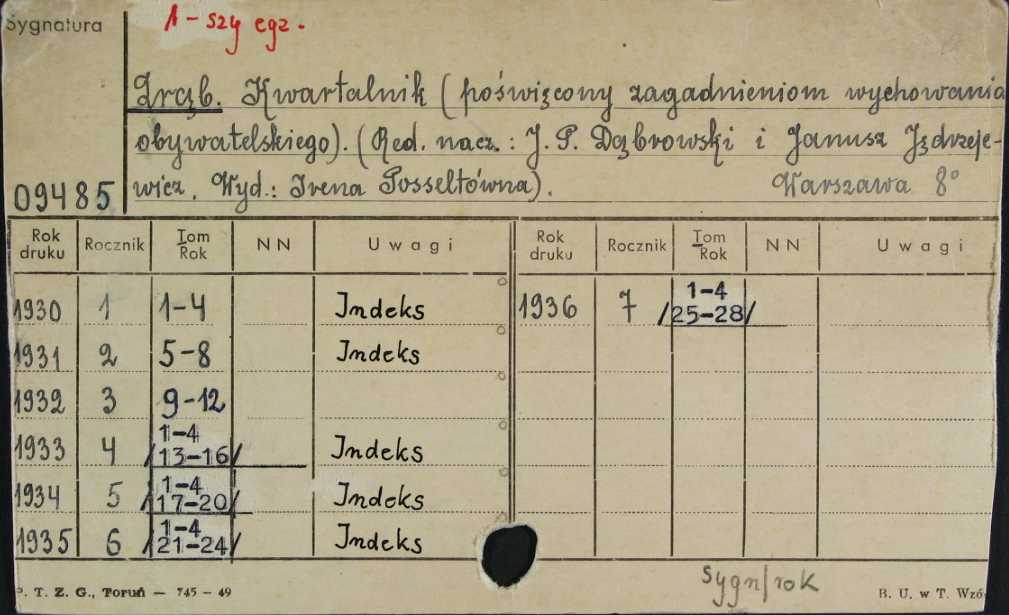 Sygnatura
1-szy egz.
Zrąb. Kwartalnik (poświęcony zagadnieniom wychowania
obywatelskiego). (Red. nacz.: J. P. Dąbrowski i Janusz Jędrzeje-
wicz. Wyd.: Irena Posseltówna). Warszawa 8°
09485
Rok druku Rocznik Tom Rok NN Uwagi Rok druku Rocznik Tom Rok NN Uwagi
1930 1 1-4 Indeks 1936 7 1-4 /25-28/
1931 2 5-8 Indeks
1932 3 9-12
1933 4 1-4 /13-16/ Indeks
1934 5 1-4 /17-20/ Indeks
1935 6 1-4 /21-24/ Indeks
sygn/rok
P. T. Z. G., Toruń — 745 — 49 B. U. w T. Wzó